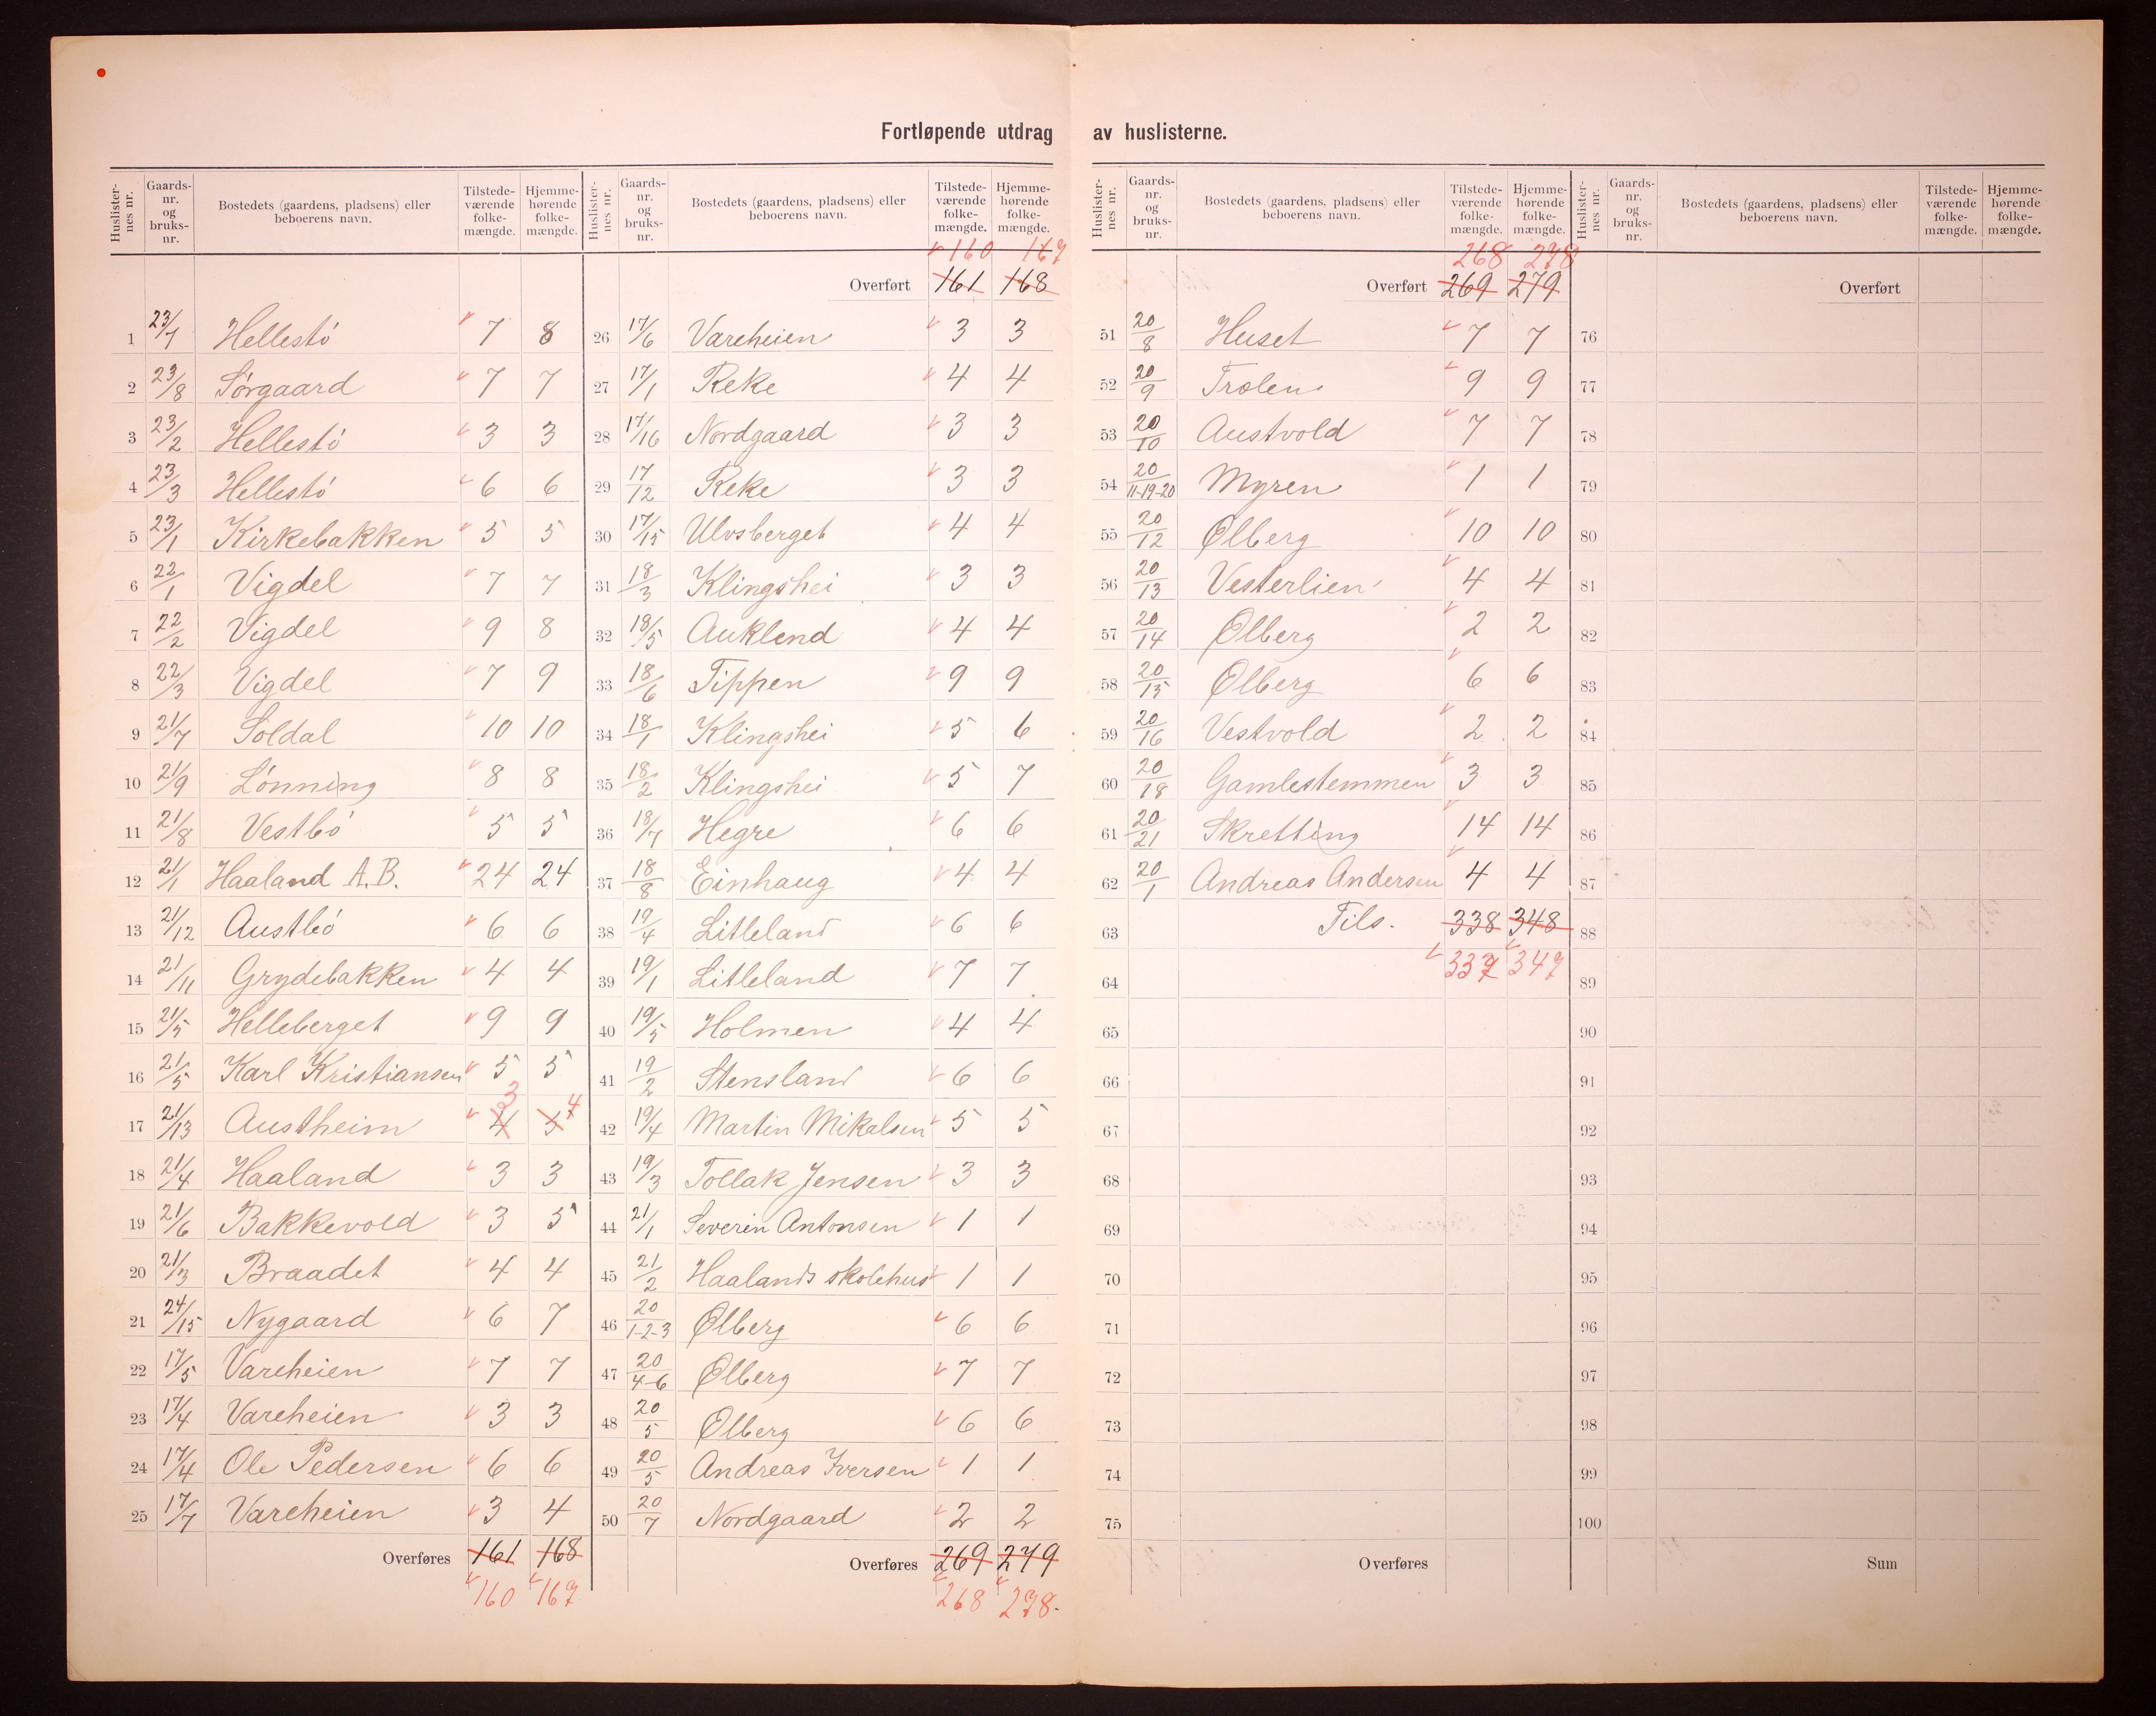 Fortløpende utdrag av huslisterne.
Huslister-nes nr. Gaards-nr. og bruks-nr. Bostedets (gaardens, pladsens) eller beboerens navn. Tilstede-værende folke-mængde. Hjemme-hørende folke-mængde.
1 23/7 Hellestö 7 8
2 23/8 Sörgaard 7 7
3 23/2 Hellestö 3 3
4 23/3 Hellestö 6 6
5 23/1 Kirkebakken 5 5
6 22/1 Vigdel 7 7
7 22/2 Vigdel 9 8
8 22/3 Vigdel 7 9
9 21/7 Soldal 10 10
10 21/9 Lönning 8 8
11 21/8 Vestbö 5 5
12 21/1 Haaland A.B. 24 24
13 21/12 Austbö 6 6
14 21/11 Grydebakken 4 4
15 21/5 Helleberget 9 9
16 21/5 Karl Kristiansen 5 5
17 21/13 Austheim 4 3 5 4
18 21/4 Haaland 3 3
19 21/6 Bakkevold 3 5
20 21/3 Braadet 4 4
21 24/15 Nygaard 6 7
22 17/5 Vareheien 7 7
23 17/4 Vareheien 3 3
24 17/4 Ole Pedersen 6 6
25 17/7 Vareheien 3 4
Overføres 161 168
160 167
Huslister-nes nr. Gaards-nr. og bruks-nr. Bostedets (gaardens, pladsens) eller beboerens navn. Tilstede-værende folke-mængde. Hjemme-hørende folke-mængde.
160 167
Overført 161 168
26 17/6 Vareheien 3 3
27 17/1 Reke 4 4
28 17/16 Nordgaard 3 3
29 17/12 Reke 3 3
30 17/15 Ulvsberget 4 4
31 18/3 Klingshei 3 3
32 18/5 Auklend 4 4
33 18/6 Tippen 9 9
34 18/1 Klingshei 5 6
35 18/2 Klingshei 5 7
36 18/7 Hegre 6 6
37 18/8 Einhaug 4 4
38 19/4 Litleland 6 6
39 19/1 Litleland 7 7
40 19/5 Holmen 4 4
41 19/2 Stensland 6 6
42 19/4 Martin Mikalsen 5 5
43 19/3 Tollak Jensen 3 3
44 21/1 Severin Antonsen 1 1
45 21/2 Haalands skolehus 1 1
46 20/1-2-3 Ølberg 6 6
47 20/4-6 Ølberg 7 7
48 20/5 Ølberg 6 6
49 20/5 Andreas Iversen 1 1
50 20/7 Nordgaard 2 2
Overføres 269 279
268 278.
Huslister-nes nr. Gaards-nr. og bruks-nr. Bostedets (gaardens, pladsens) eller beboerens navn. Tilstede-værende folke-mængde. Hjemme-hørende folke-mængde.
268 278
Overført 269 279
51 20/8 Huset 7 7
52 20/9 Trolen 9 9
53 20/10 Austvold 7 7
54 20/11-19-20 Myren 1 1
55 20/12 Ølberg 10 10
56 20/13 Vesterlien 4 4
57 20/14 Ølberg 2 2
58 20/15 Ølberg 6 6
59 20/16 Vestvold 2 2
60 20/18 Gamlestemmen 3 3
61 20/21 Skretting 14 14
62 20/1 Andreas Andersen 4 4
63 Tils. 338 348
64 337 347
65
66
67
68
69
70
71
72
73
74
75
Overføres
Huslister-nes nr. Gaards-nr. og bruks-nr. Bostedets (gaardens, pladsens) eller beboerens navn. Tilstede-værende folke-mængde. Hjemme-hørende folke-mængde.
Overført
76
77
78
79
80
81
82
83
84
85
86
87
88
89
90
91
92
93
94
95
96
97
98
99
100
Sum